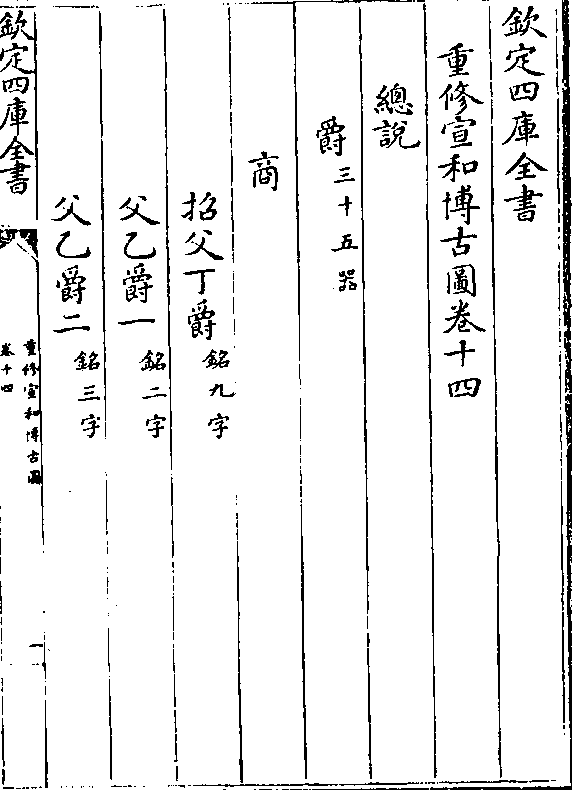 欽定四庫全書
重修宣和博古圖卷十四
總說
爵三十五器
商
招父丁爵銘九字
父乙爵一銘二字
父乙爵二銘三字
欽定四庫全書
重修宣和博古圖
卷十四
一